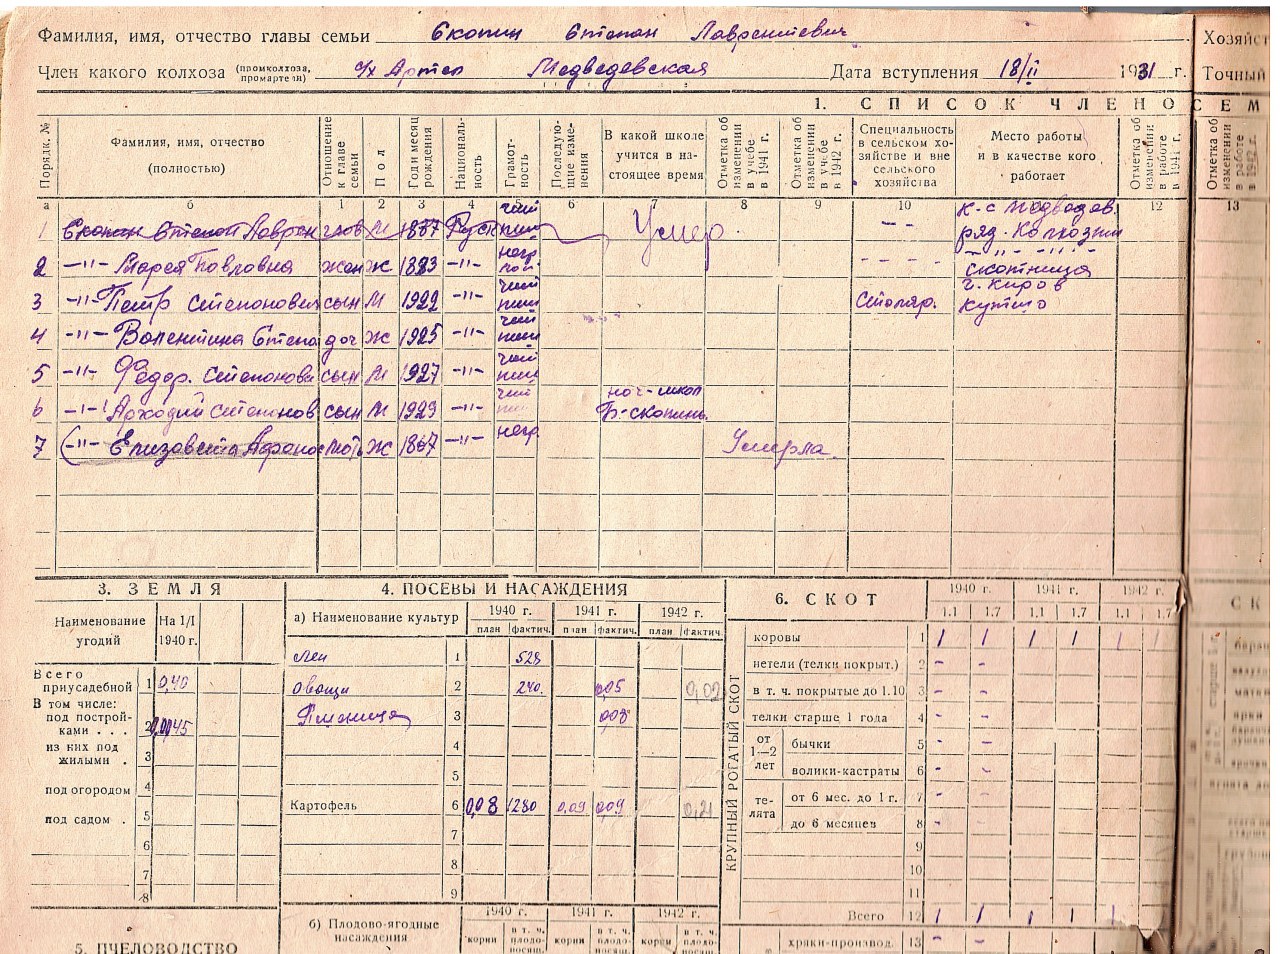 Фамилия, имя, отчество главы семьи Скопин Степан Лаврентиевич
Хозяйст
Член какого колхоза (промколхоза, промартели) с/х Артел Медведевская Дата вступления 18/II 1931 г.
Точный
1. СПИСОК ЧЛЕНОВ СЕМ
Порядк. № Фамилия, имя, отчество (полностью) Отношение к главе семьи Пол Год и месяц рождения Националь-ность Грамот-ность Последую-щие изме-нения В какой школе учится в на-стоящее время Отметка об изменении в учебе в 1941 г. Отметка об изменении в учебе в 1942 г. Специальность в сельском хо-зяйстве и вне сельского хозяйства Место работы и в качестве кого работает Отметка об изменении в работе в 1941 г. Отметка об изменении в работе в 1942 г.
а б 1 2 3 4 5 6 7 8 9 10 11 12 13
1 Скопин Степан Лаврен глав М 1887 Руск Умер - - к-с Медведев. ряд. Колхозни
2 -"- Мария Павловна жен Ж 1883 -"- негр - - - - скотница
3 -"- Петр Степанович сын М 1922 -"- Столяр. г. Киров
4 -"- Валентина Степа доч Ж 1925 -"-
5 -"- Федор. Степанови сын М 1927 -"-
6 -"- Аркадий Степанов сын М 1929 -"- нач-школ Б-скопинь.
7 -"- Елизавета Афанас мать Ж 1867 -"- негр. Умерла.
3. ЗЕМЛЯ
Наименование угодий На 1/I 1940 г.
Всего приусадебной 1 0,40
В том числе: под построй-ками . . . 2
из них под жилыми . 3
под огородом 4
под садом . 5
6
7
8
5. ПЧЕЛОВОДСТВО
4. ПОСЕВЫ И НАСАЖДЕНИЯ
а) Наименование культур 1940 г. 1941 г. 1942 г.
план фактич. план фактич. план фактич.
лен 1 528
овощи 2 240. 0,05 0,02
Пшеница 3 0,08
4
5
Картофель 6 0,08 1280 0,09 0,09 0,21
7
8
9
б) Плодово-ягодные насаждения 1940 г. 1941 г. 1942 г.
корни в т. ч. плодо-носящ. корни в т. ч. плодо-носящ. корни в т. ч. плодо-носящ.
6. СКОТ 1940 г. 1941 г. 1942 г.
1.1 1.7 1.1 1.7 1.1 1.7
КРУПНЫЙ РОГАТЫЙ СКОТ
коровы 1 1 1 1 1 1 1
нетели (телки покрыт.) 2 - -
в т. ч. покрытые до 1.10 3 - -
телки старше 1 года 4 - -
от 1—2 лет бычки 5 - -
волики-кастраты 6 - -
те-лята от 6 мес. до 1 г. 7 - -
до 6 месяцев 8 - -
9
10
11
Всего 12 1 1 1 1 1
хряки-производ. 13 - -
СК